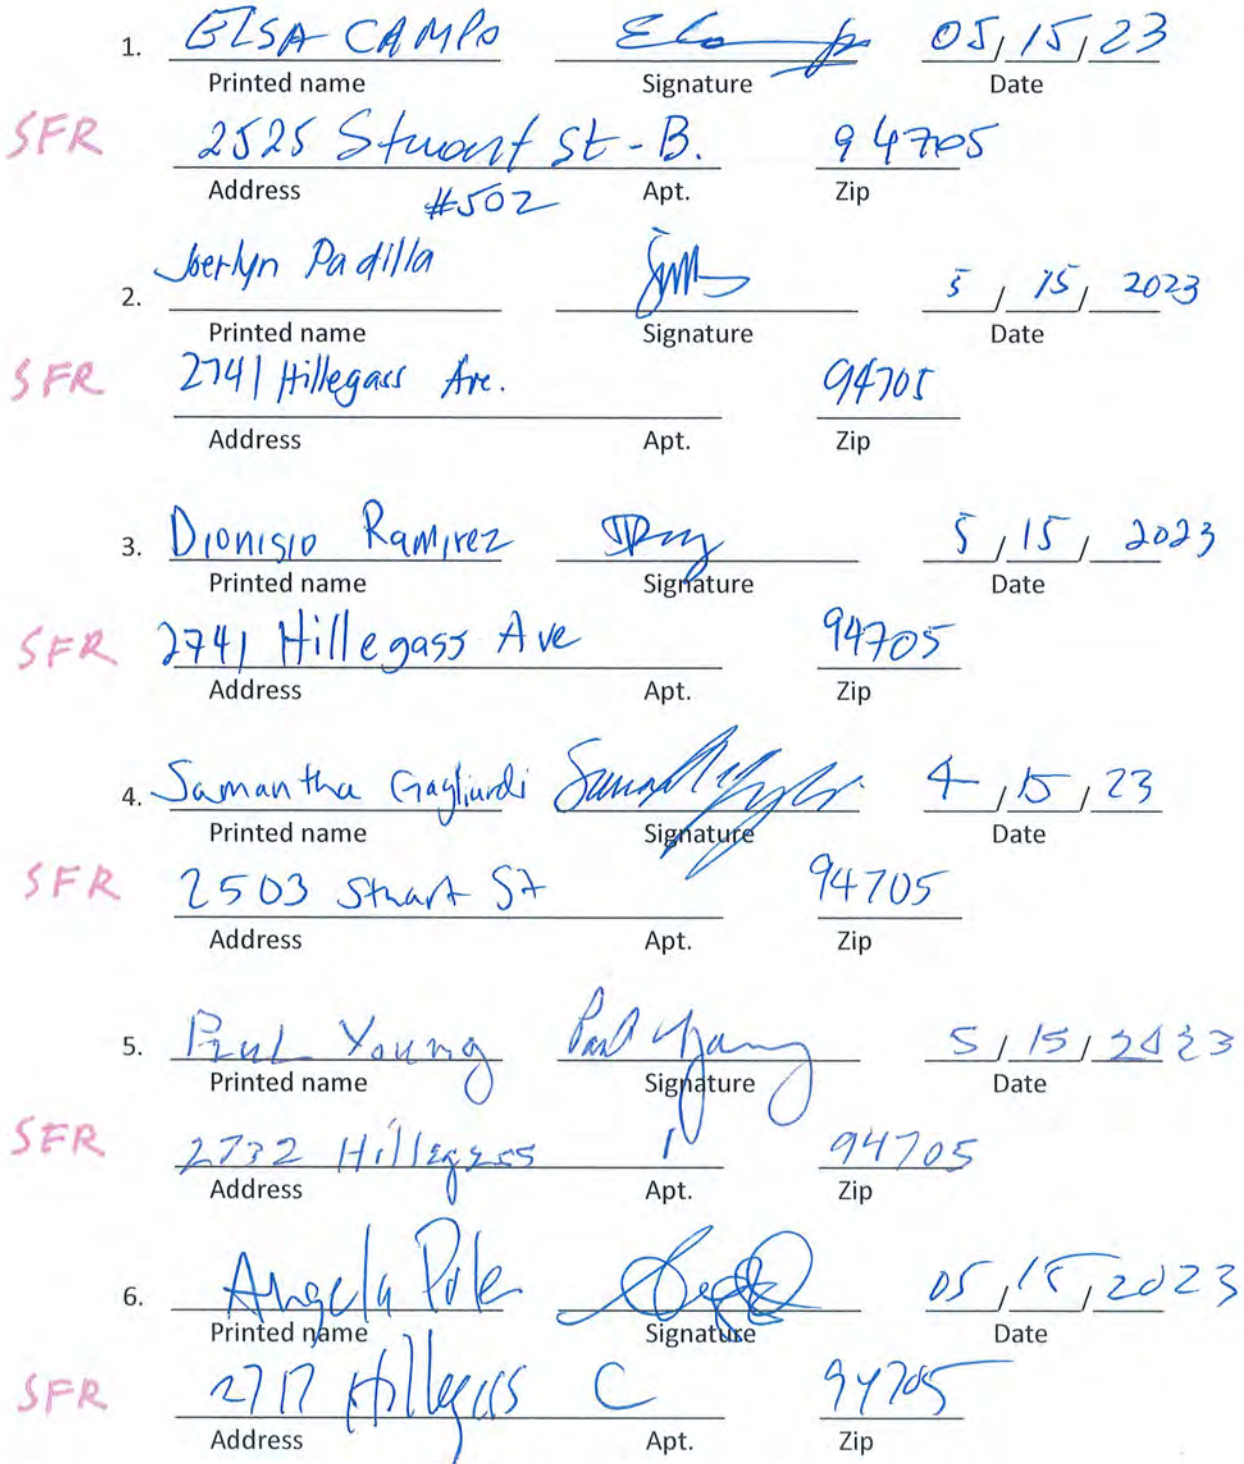 1. ELSA CAMPO 05/15/23
Printed name Signature Date
SFR 2525 Stuart St - B. 94705
Address #502 Apt. Zip
2. Joerlyn Padilla 5/15/2023
Printed name Signature Date
SFR 2741 Hillegass Ave. 94705
Address Apt. Zip
3. Dionisio Ramirez 5/15/2023
Printed name Signature Date
SFR 2741 Hillegass Ave 94705
Address Apt. Zip
4. Samantha Gagliardi 4/15/23
Printed name Signature Date
SFR 2503 Stuart St 94705
Address Apt. Zip
5. Paul Young Paul Young 5/15/2023
Printed name Signature Date
SFR 2732 Hillegass 1 94705
Address Apt. Zip
6. Angela 05/15/2023
Printed name Signature Date
SFR 2717 Hillegass C 94705
Address Apt. Zip